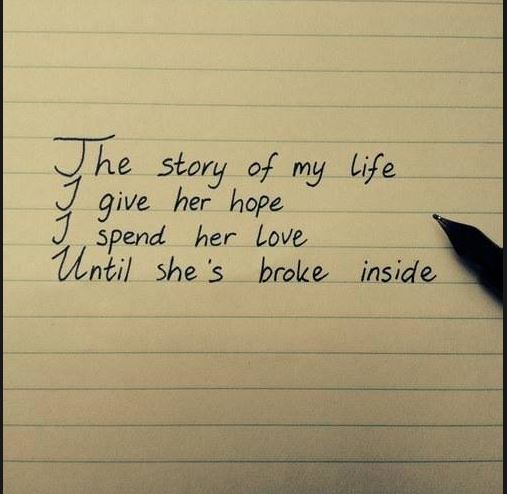 The story of my life
I give her hope
I spend her love
Until she's broke inside